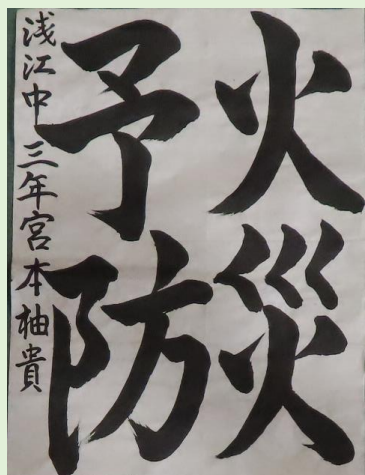 火災
予防
浅江中三年宮本柚貴